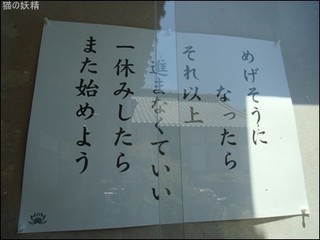 猫の妖精
めげそうに
なったら
それ以上
進まなくていい
一休みしたら
また始めよう